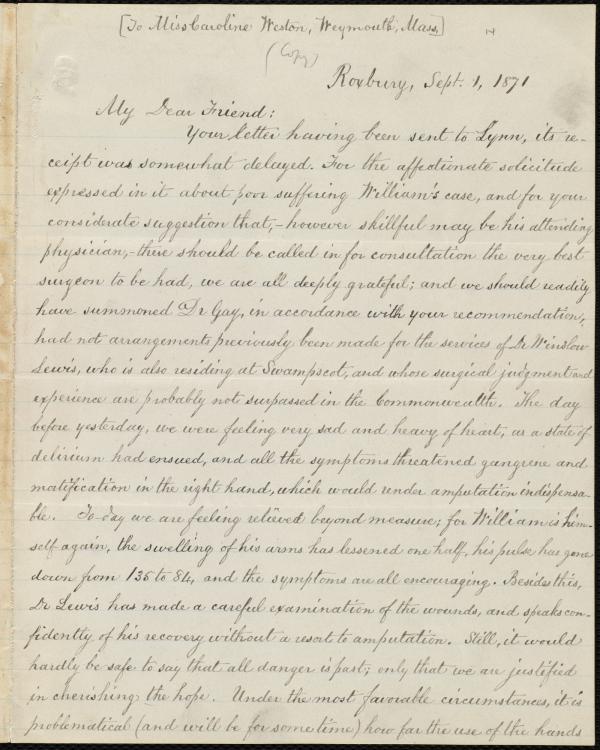 [To Miss Caroline Weston, Weymouth, Mass.]
(Copy)
Roxbury, Sept. 1, 1871
My Dear Friend:
Your letter having been sent to Lynn, its re-
ceipt was somewhat delayed. For the affectionate solicitude
expressed in it about poor suffering William's case, and for your
considerate suggestion that,-however skillful may be his attending
physician,-there should be called in for consultation the very best
surgeon to be had, we are all deeply grateful; and we should readily
have summoned Dr Gay, in accordance with your recommendation,
had not arrangements previously been made for the services of Dr Winslow
Lewis, who is also residing at Swampscot, and whose surgical judgment and
experience are probably not surpassed in the Commonwealth. The day
before yesterday, we were feeling very sad and heavy of heart, as a state of
delirium had ensued, and all the symptoms threatened gangrene and
mortification in the right hand, which would render amputation indispensa-
ble. To-day we are feeling relieved beyond measure; for William is him-
self again, the swelling of his arms has lessened one half, his pulse has gone
down from 135 to 84, and the symptoms are all encouraging. Besides this,
Dr Lewis has made a careful examination of the wounds, and speaks con-
fidently of his recovery without a resort to amputation. Still, it would
hardly be safe to say that all danger is past; only that we are justified
in cherishing the hope. Under the most favorable circumstances, it is
problematical (and will be for some time) how far the use of the hands